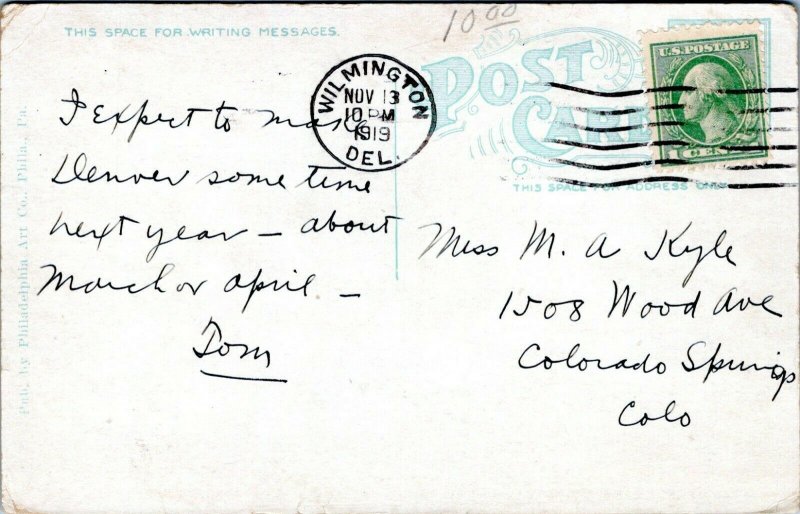 10 00
THIS SPACE FOR WRITING MESSAGES.
POST CARD
U.S. POSTAGE
1 CENT 1
WILMINGTON
NOV 13
10 PM
1919
DEL.
THIS SPACE FOR ADDRESS ONLY
I expect to make
Denver some time
next year — about
March or April —
Tom
Miss M. A Kyle
1508 Wood Ave
Colorado Springs
Colo
Pub. by Philadelphia Art Co., Phila., Pa.